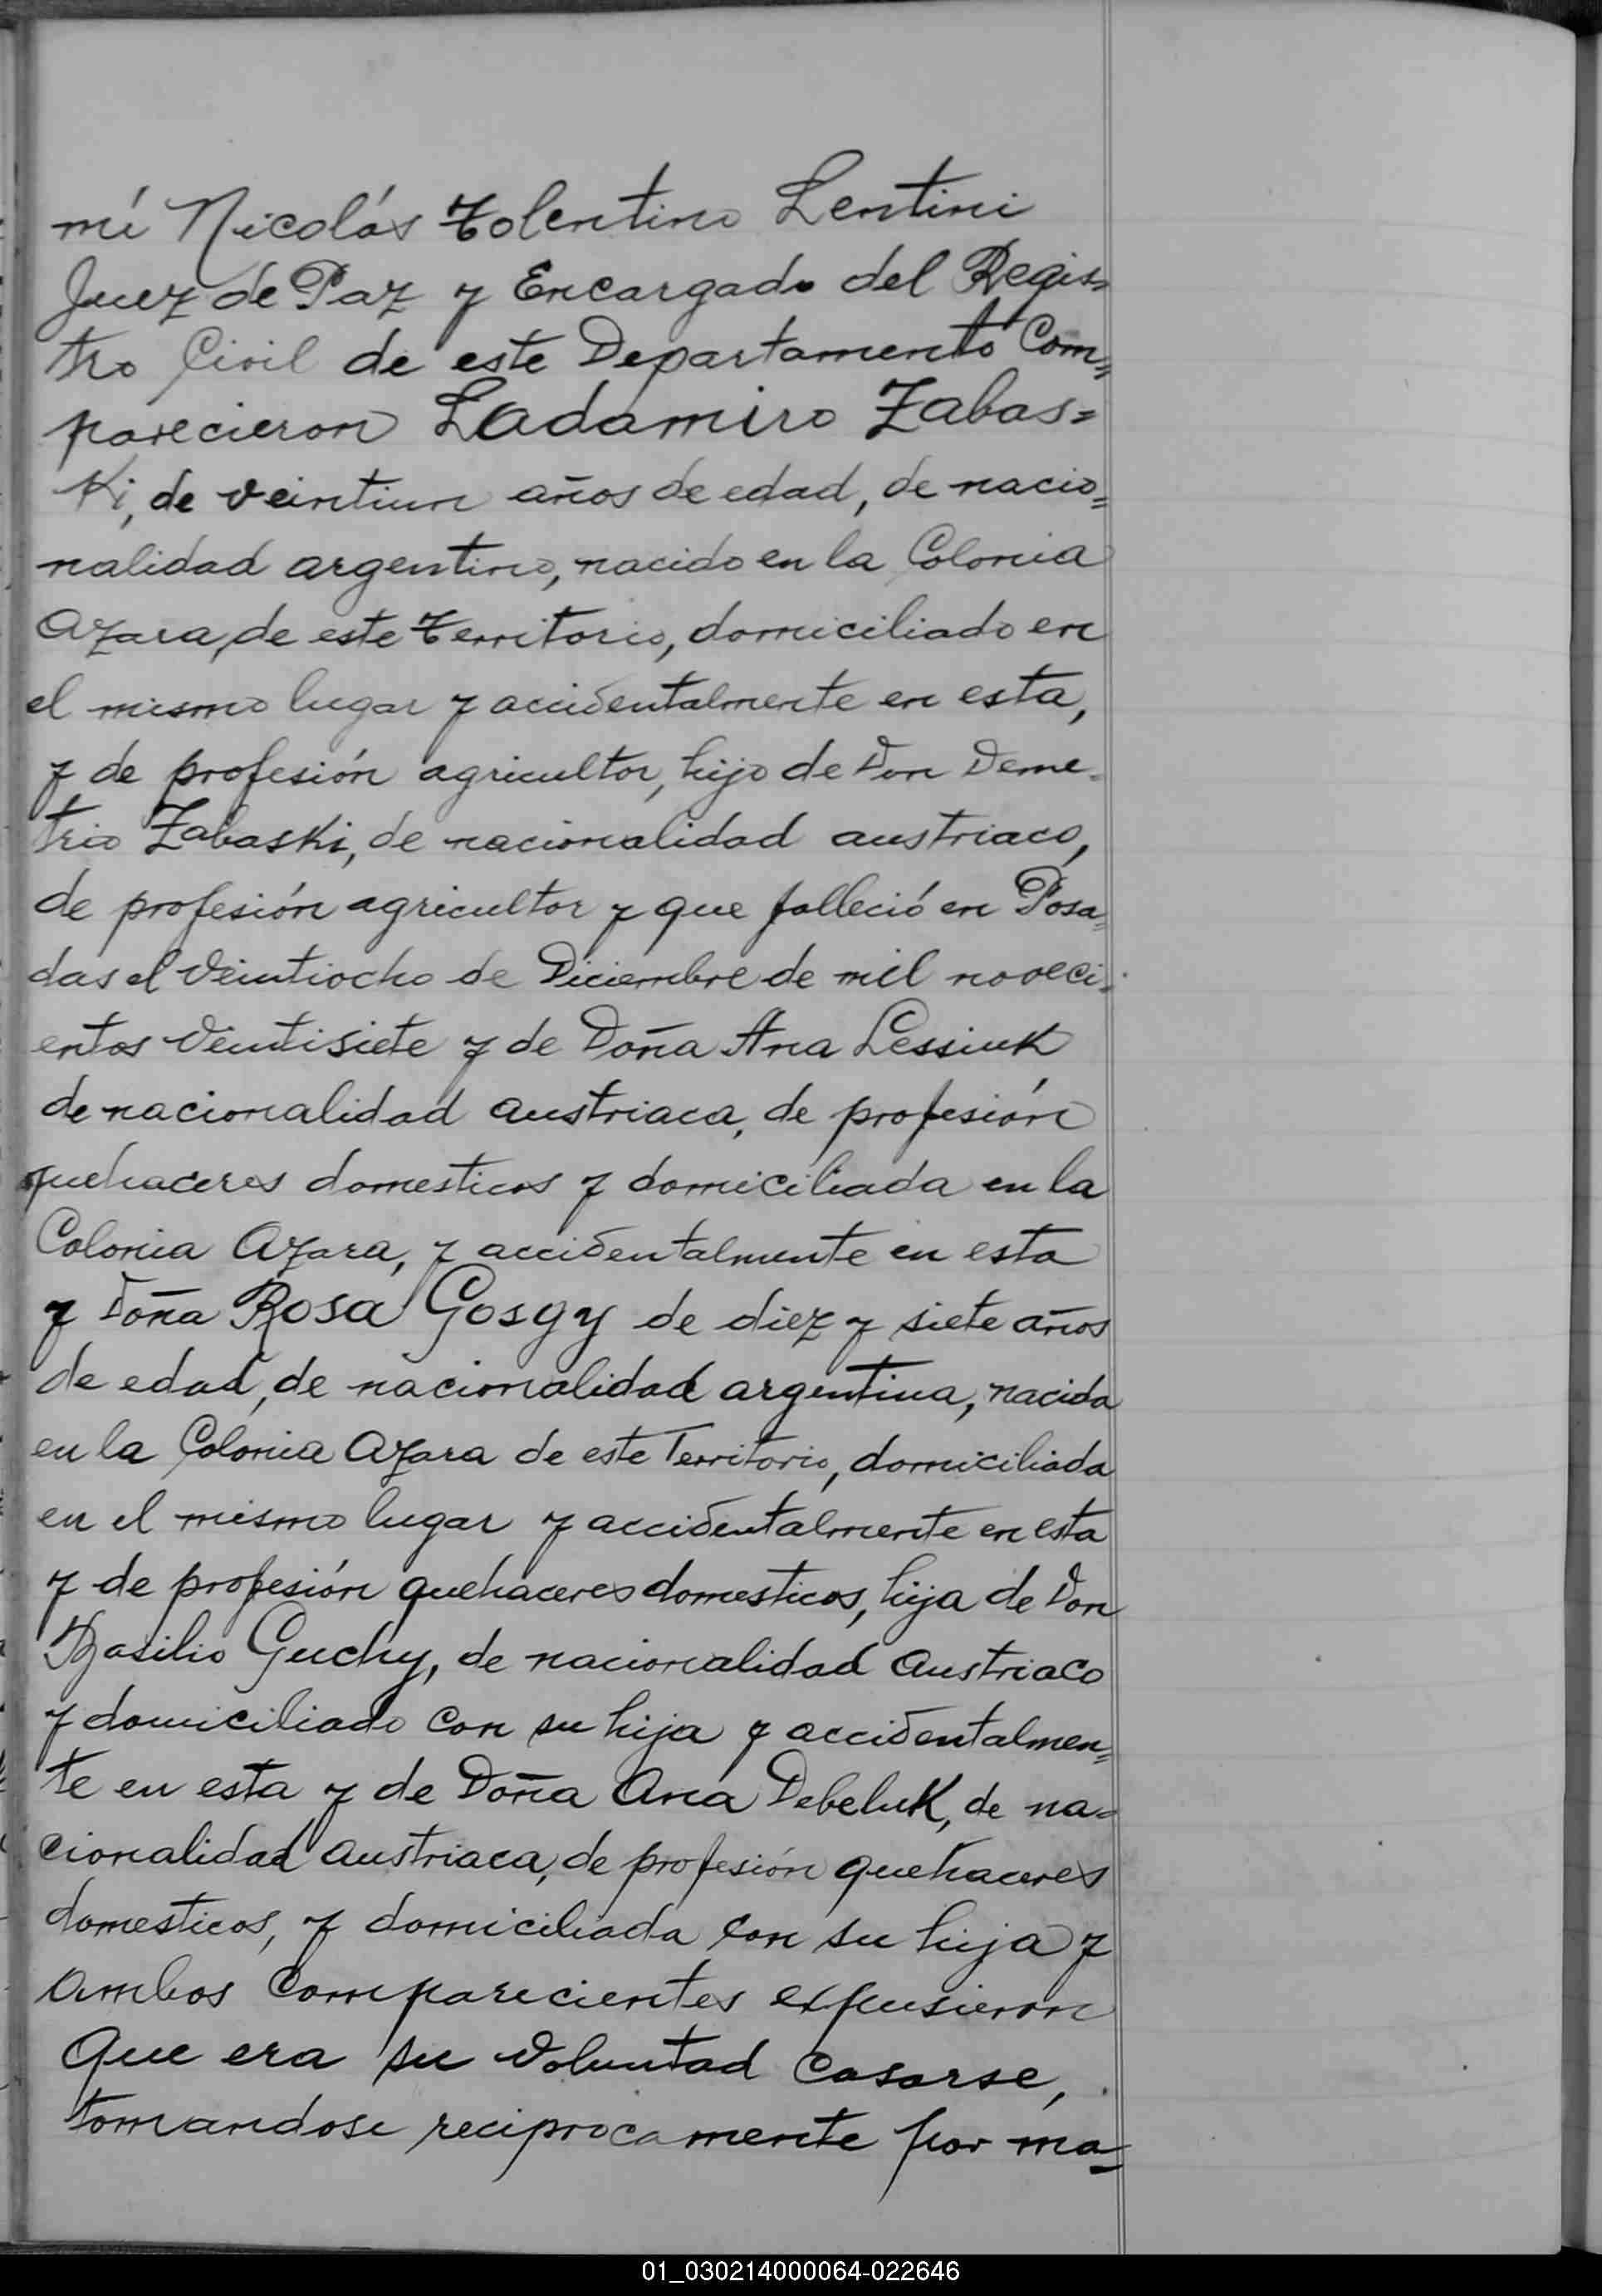 mí Nicolás Tolentino Lentini
Juez de Paz y Encargado del Regis=
tro Civil de este Departamento Com=
parecieron Ladamiro Zabas=
Ki, de veintiun años de edad, de nacio=
nalidad argentino, nacido en la Colonia
Azara, de este Territorio, domiciliado en
el mismo lugar y accidentalmente en esta,
y de profesión agricultor, hijo de Don Deme=
trio Zabaski, de nacionalidad austriaco,
de profesión agricultor y que falleció en Posa=
das el veintiocho de Diciembre de mil noveci=
entos veintisiete y de Doña Ana Lessiuk
de nacionalidad austriaca, de profesión
quehaceres domesticos y domiciliada en la
Colonia Azara, y accidentalmente en esta
y Doña Rosa Gosgy de diez y siete años
de edad, de nacionalidad argentina, nacida
en la Colonia Azara de este Territorio, domiciliada
en el mismo lugar y accidentalmente en esta
y de profesión quehaceres domesticos, hija de Don
Basilio Guchy, de nacionalidad Austriaco
y domiciliado con su hija y accidentalmen=
te en esta y de Doña Ana Debeluk, de na=
cionalidad austriaca, de profesión quehaceres
domesticos, y domiciliada con su hija y
ambos comparecientes expusieron
Que era su voluntad casarse,
tomandose reciprocamente por ma=
01_030214000064-022646